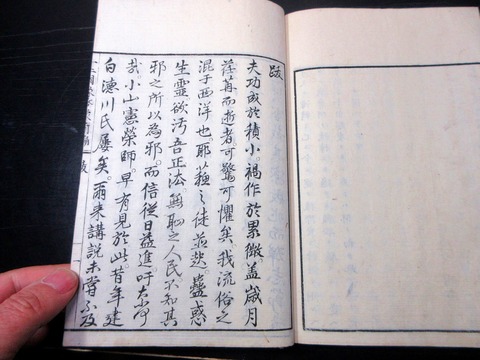 跋
夫功成於積小。禍作於累微。蓋歳月
荏苒而逝者可驚可懼矣。我流俗之
混于西洋也耶蘓之徒並起。蠱惑
生靈欲汚吾正法無恥之人民不知其
邪之所以為邪。而信従日益進吁
哉小山憲榮師。早有見於此。昔年建
白漣川氏屡矣。爾来講説未嘗不及